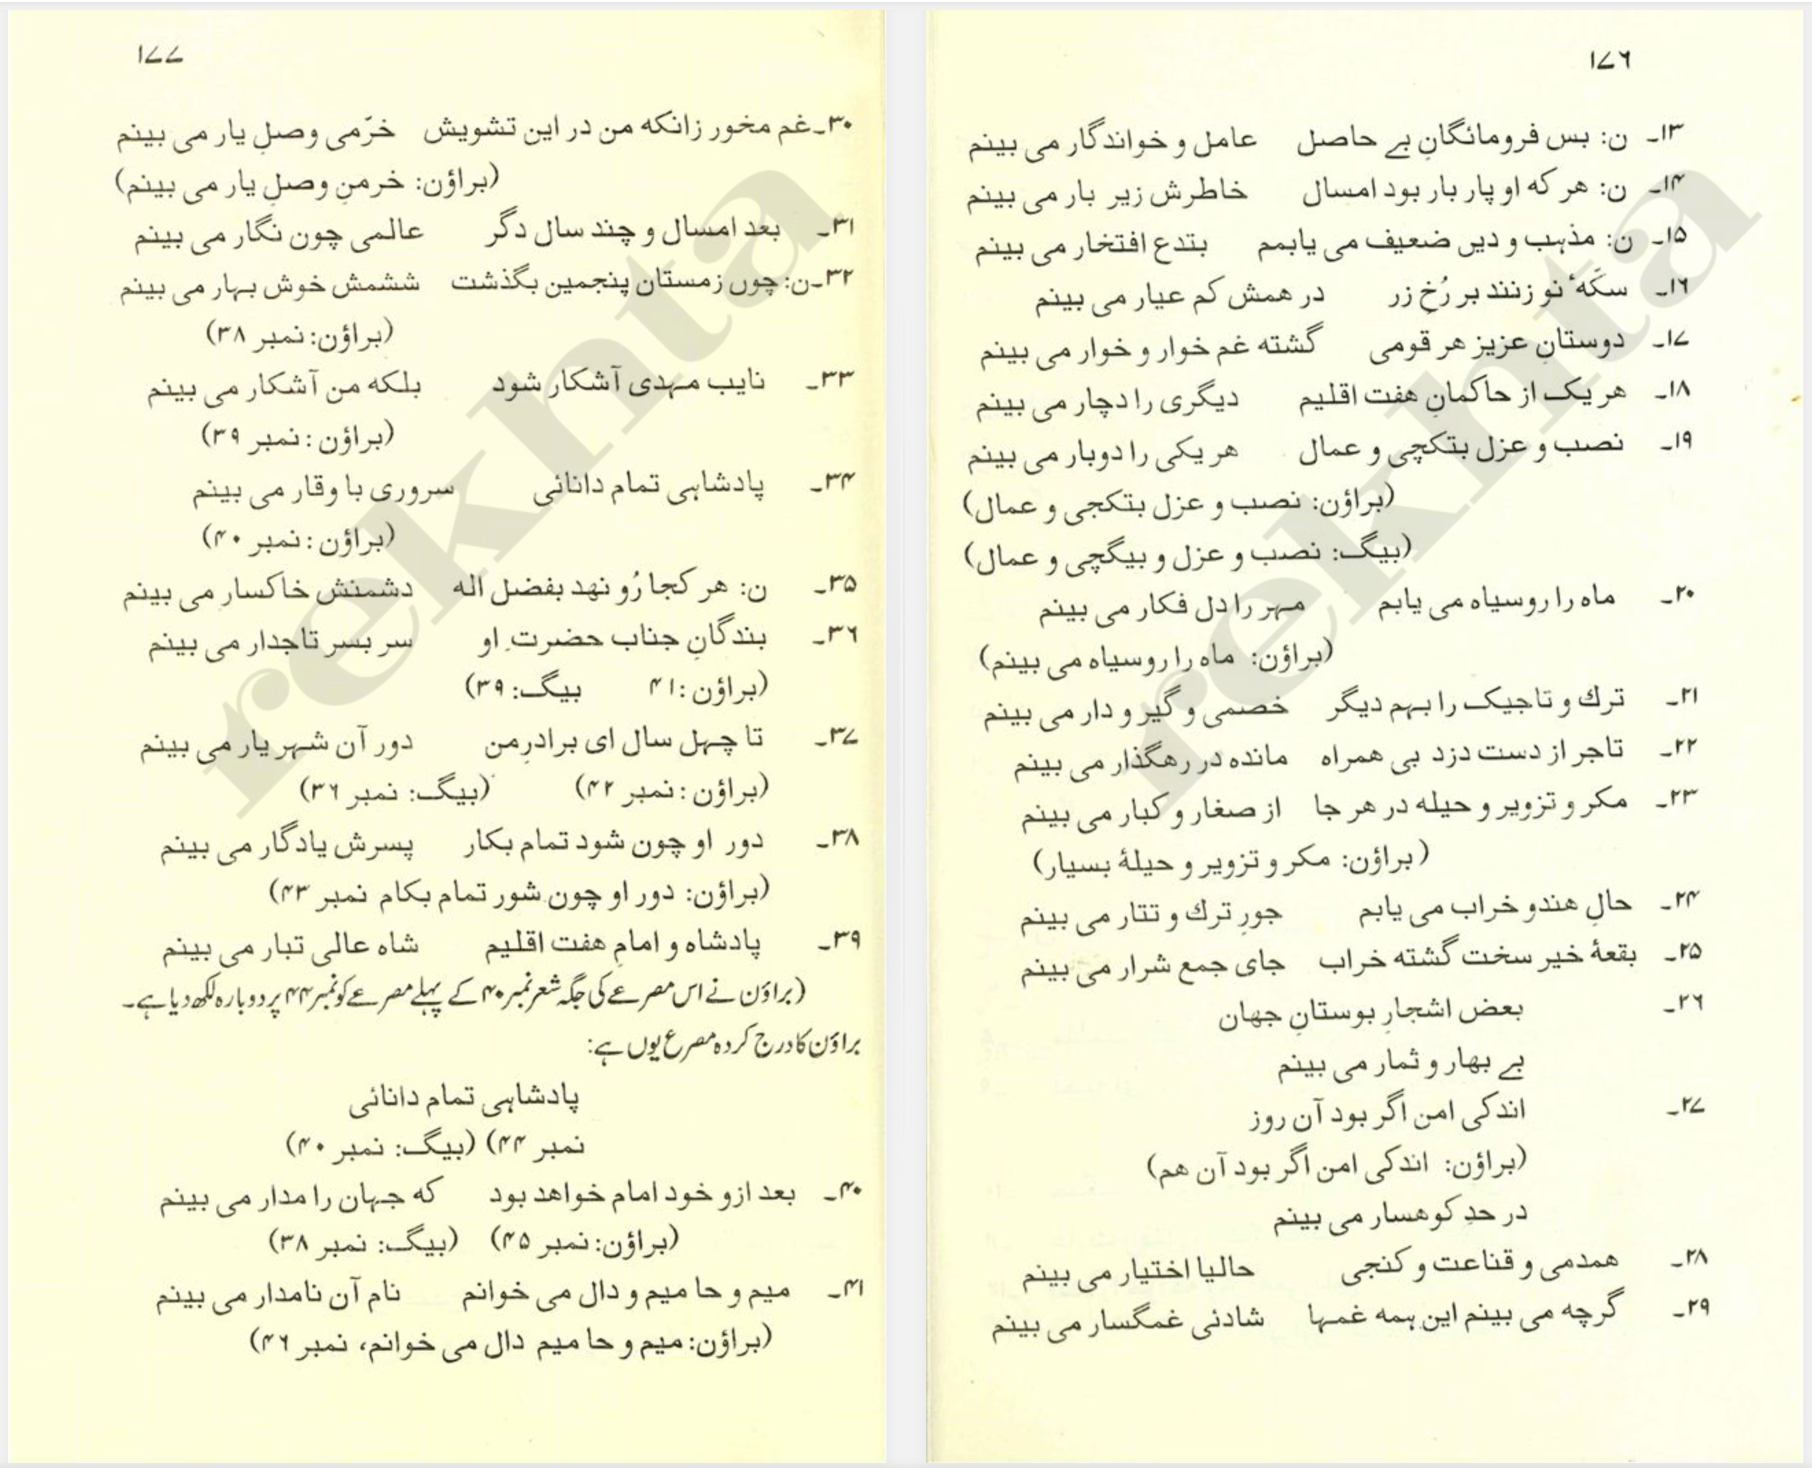 ۱۷۶
۱۳۔ ن: بس فرومائگانِ بے حاصل عامل و خواندگار می بینم
۱۴۔ ن: هر که او پار بار بود امسال خاطرش زیر بار می بینم
۱۵۔ ن: مذہب و دیں ضعیف می یابمم بتدع افتخار می بینم
۱۶۔ سکّهٔ نو زنند بر رُخِ زر در همش کم عیار می بینم
۱۷۔ دوستانِ عزیز هر قومی گشته غم خوار و خوار می بینم
۱۸۔ هر یک از حاکمانِ هفت اقلیم دیگری را دچار می بینم
۱۹۔ نصب و عزل بتکچی و عمال هر یکی را دوبار می بینم
(براؤن: نصب و عزل بتکجی و عمال)
(بیگ: نصب و عزل و بیگچی و عمال)
۲۰۔ ماه را روسیاه می یابم مہر را دل فکار می بینم
(براؤن: ماه را روسیاه می بینم)
۲۱۔ ترك و تاجیک را بہم دیگر خصمی و گیر و دار می بینم
۲۲۔ تاجر از دست دزد بی همراه مانده در رهگذار می بینم
۲۳۔ مکر و تزویر و حیله در هر جا از صغار و کبار می بینم
(براؤن: مکر و تزویر و حیلهٔ بسیار)
۲۴۔ حالِ هندو خراب می یابم جورِ ترك و تتار می بینم
۲۵۔ بقعهٔ خیر سخت گشته خراب جای جمع شرار می بینم
۲۶۔ بعض اشجارِ بوستانِ جهان
بے بهار و ثمار می بینم
۲۷۔ اندکی امن اگر بود آن روز
(براؤن: اندکی امن اگر بود آن هم)
در حدِ کوهسار می بینم
۲۸۔ همدمی و قناعت و کنجی حالیا اختیار می بینم
۲۹۔ گرچه می بینم این ہمه غمہا شادئی غمگسار می بینم
۱۷۷
۳۰۔ غم مخور زانکه من در این تشویش خرّمی وصلِ یار می بینم
(براؤن: خرمنِ وصلِ یار می بینم)
۳۱۔ بعد امسال و چند سال دگر عالمی چون نگار می بینم
۳۲۔ ن: چوں زمستان پنجمین بگذشت ششمش خوش بہار می بینم
(براؤن: نمبر ۳۸)
۳۳۔ نایب مہدی آشکار شود بلکه من آشکار می بینم
(براؤن: نمبر ۳۹)
۳۴۔ پادشاہی تمام دانائی سروری با وقار می بینم
(براؤن: نمبر ۴۰)
۳۵۔ ن: هر کجا رُو نهد بفضل اله دشمنش خاکسار می بینم
۳۶۔ بندگانِ جناب حضرتِ او سر بسر تاجدار می بینم
(براؤن: ۴۱ بیگ: ۳۹)
۳۷۔ تا چہل سال ای برادرِ من دور آن شہر یار می بینم
(براؤن: نمبر ۴۲) (بیگ: نمبر ۳۶)
۳۸۔ دور او چون شود تمام بکار پسرش یادگار می بینم
(براؤن: دور او چون شور تمام بکام نمبر ۴۳)
۳۹۔ پادشاه و امامِ هفت اقلیم شاه عالی تبار می بینم
(براؤن نے اس مصرعے کی جگہ شعر نمبر ۴۰ کے پہلے مصرعے کو نمبر ۴۴ پر دوبارہ لکھ دیا ہے۔
براؤن کا درج کردہ مصرع یوں ہے:
پادشاہی تمام دانائی
نمبر ۴۴) (بیگ: نمبر ۴۰)
۴۰۔ بعد ازو خود امام خواهد بود که جہان را مدار می بینم
(براؤن: نمبر ۴۵) (بیگ: نمبر ۳۸)
۴۱۔ میم و حا میم و دال می خوانم نام آن نامدار می بینم
(براؤن: میم و حا میم دال می خوانم، نمبر ۴۶)
rekhta
rekhta